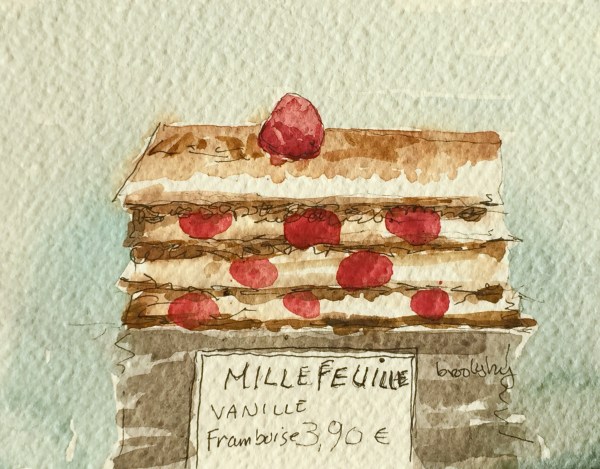 MILLEFEUILLE
brooksby
VANILLE
Framboise 3,90 €